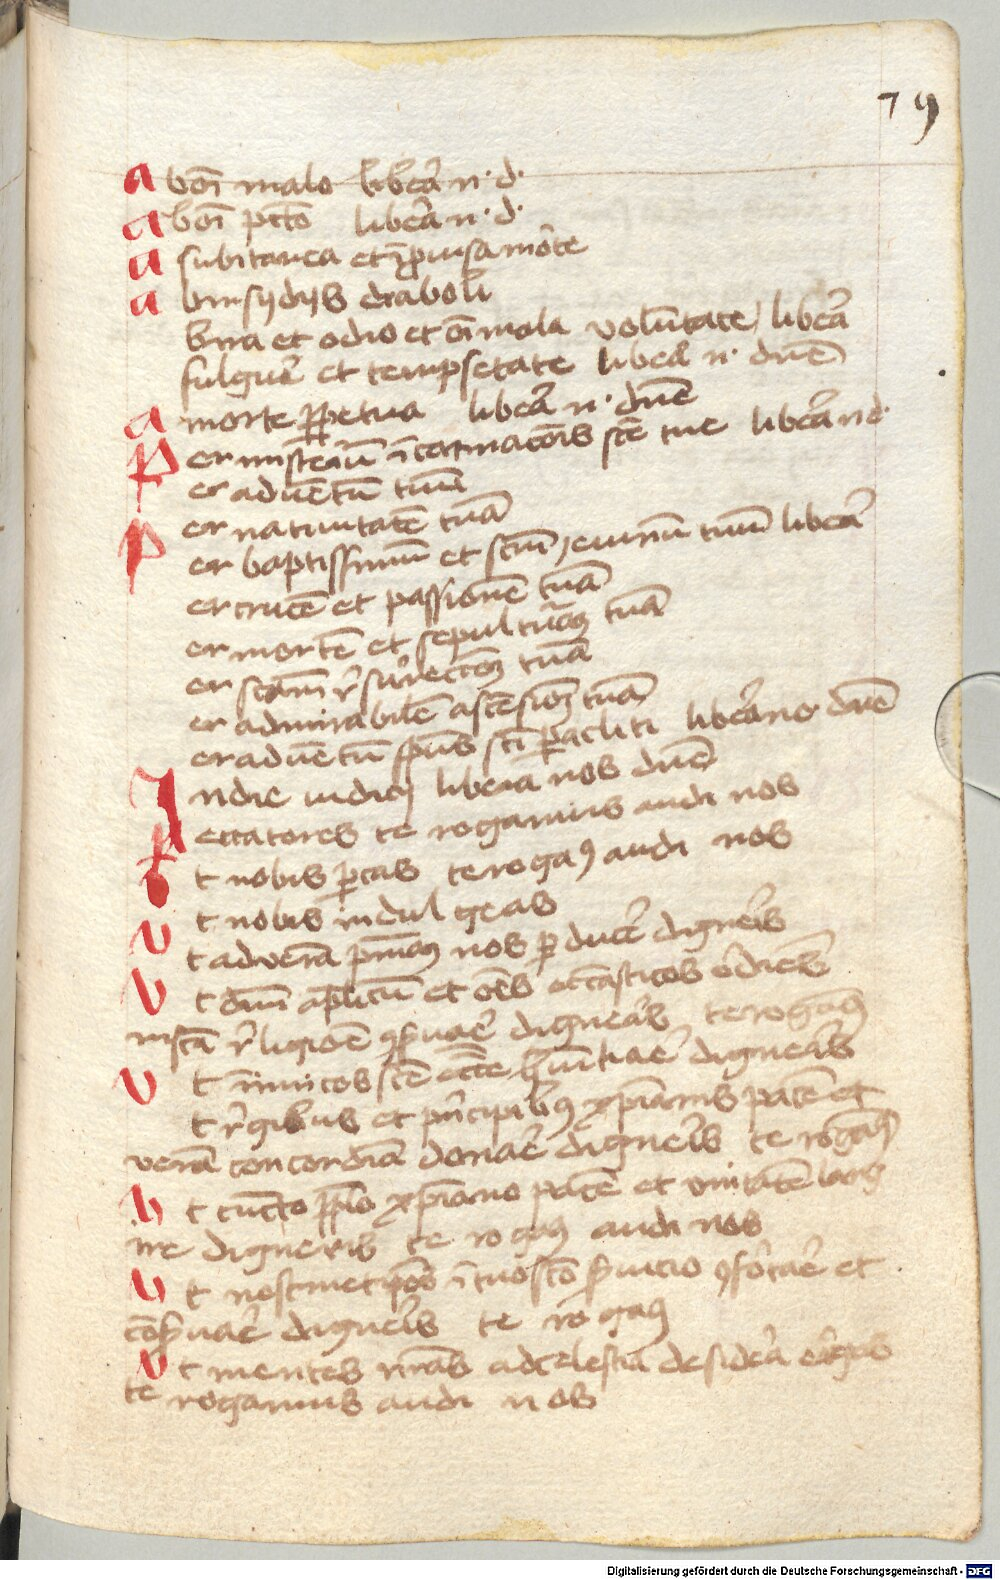 79
a bōi malo liberā n · d ·
a bōi pctō liberā n · d ·
a subitanea et īprouisa morte
a binsydijs diaboli
bira et odio et oī mala volūtate liberā
fulgure et tempsetate liberā n · dnē
a morte ꝑpetua liberā n · dnē
P er misteriū īcarnacōis scē tue liberā n d ·
er aduētū tuū
er natiuitatē tuā
P er baptissmum et scm̄ ieiuniū tuū liberā
er crucē et passionē tuā
er mortē et sepulturaꝫ tuā
er scām rsurectōꝫ tuā
er admirabilē ascēsionꝫ tuā
er aduētū spūs scī paracliti liberā nos dnē
I ndie iudicij liberā nos dnē
P eccatores te rogamus audi nos
U t nobis ꝑcas te rogaꝰ audi nos
t nobis indulgeas
U t ad verā pniaꝫ nos ꝑducē digneris
U t dnm̄ aplicū et oēs ecciasticos ordiēs
in scā rligiōe ꝯseruare digneris te rogaꝰ
U t īimicos scē eccie hūiliare digneris
t rgibus et pncipibꝰ xpianis pacē et
verā concordiā donare digneris te rogaꝰ
U t cūcto ppło xpiano pacē et vnitatē larg
ire digneris te rogaꝰ audi nos
U t nosmetipōs ī tuo scō seruicio ꝯfortare et
cōseruare digneris te rogaꝰ
U t mentes nrās ad celestia desideria erigas
te rogamus audi nos
Digitalisierung gefördert durch die Deutsche Forschungsgemeinschaft - DFG